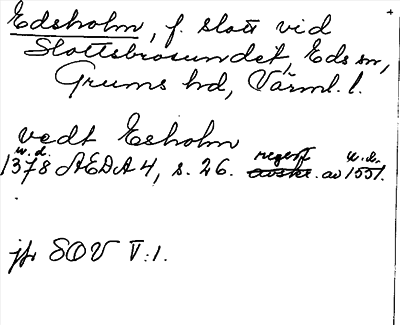 Edsholm, f. slott vid
Slottsbrosundet, Eds sn,
Grums hd, Värml. l.
vedt Esholm
u. d. regest u. d.
1378 AEDA 4, s. 26. avskr. av 1551.
jfr SOV V:1.